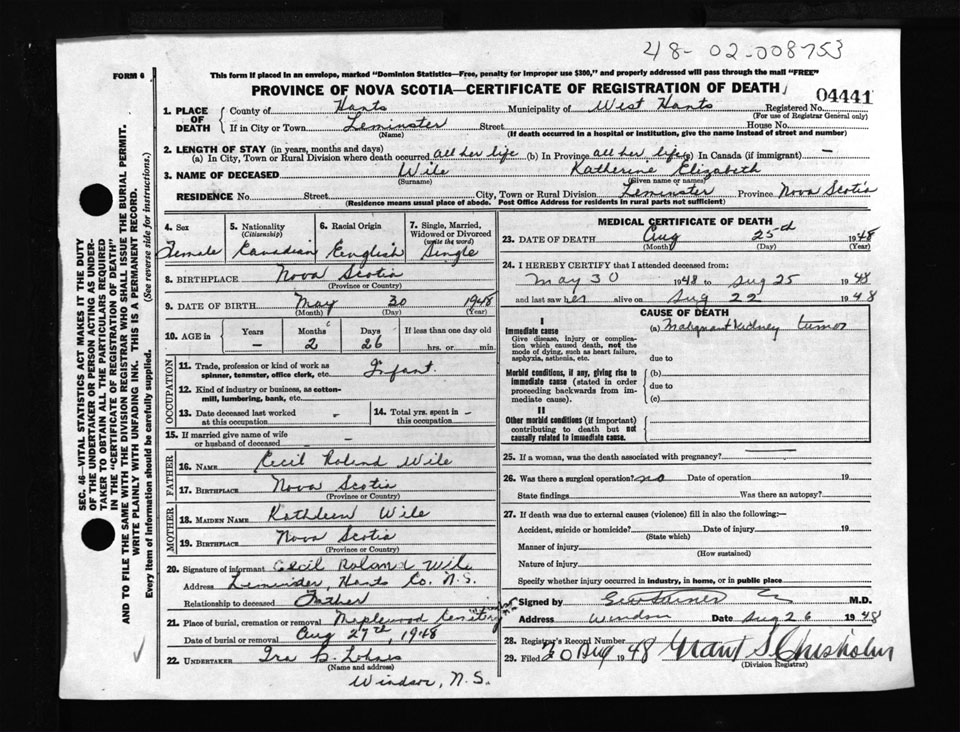 48-02-008753
FORM 6
This form if placed in an envelope, marked "Dominion Statistics—Free, penalty for improper use $300," and properly addressed will pass through the mail "FREE"
PROVINCE OF NOVA SCOTIA—CERTIFICATE OF REGISTRATION OF DEATH
04441
1. PLACE OF DEATH County of Hants Municipality of West Hants Registered No.
(For use of Registrar General only)
If in City or Town Leminster Street House No.
(Name) (If death occurred in a hospital or institution, give the name instead of street and number)
2. LENGTH OF STAY (in years, months and days)
(a) In City, Town or Rural Division where death occurred all her life (b) In Province all her life (c) In Canada (if immigrant) —
3. NAME OF DECEASED Wile Katherine Elizabeth
(Surname) (Given name or names)
RESIDENCE No. Street City, Town or Rural Division Leminster Province Nova Scotia
(Residence means usual place of abode. Post Office Address for residents in rural parts not sufficient)
4. Sex
Female
5. Nationality (Citizenship)
Canadian
6. Racial Origin
English
7. Single, Married, Widowed or Divorced (write the word)
Single
8. BIRTHPLACE Nova Scotia
(Province or Country)
9. DATE OF BIRTH May 30 1948
(Month) (Day) (Year)
10. AGE in Years Months Days If less than one day old
— 2 26 hrs. or min.
OCCUPATION
11. Trade, profession or kind of work as spinner, teamster, office clerk, etc. Infant.
12. Kind of industry or business, as cotton-mill, lumbering, bank, etc.
13. Date deceased last worked at this occupation -
14. Total yrs. spent in this occupation -
15. If married give name of wife or husband of deceased -
FATHER
16. NAME Cecil Rolend Wile
17. BIRTHPLACE Nova Scotia
(Province or Country)
MOTHER
18. MAIDEN NAME Kathleen Wile
19. BIRTHPLACE Nova Scotia
(Province or Country)
20. Signature of informant Cecil Roland Wile
Address Leminster, Hants Co. N.S.
Relationship to deceased Father
21. Place of burial, cremation or removal Maplewood Cemetery
Date of burial or removal Aug 27th, 1948
22. UNDERTAKER Ira B. Lohnes
(Name and address)
Windsor, N.S.
MEDICAL CERTIFICATE OF DEATH
23. DATE OF DEATH Aug 25th 1948
(Month) (Day) (Year)
24. I HEREBY CERTIFY that I attended deceased from:
May 30 1948 to Aug 25 1948
and last saw her alive on Aug 22 1948
CAUSE OF DEATH
I
Immediate cause
Give disease, injury or complication which caused death, not the mode of dying, such as heart failure, asphyxia, asthenia, etc.
(a) Malignant kidney tumor
due to
Morbid conditions, if any, giving rise to immediate cause (stated in order proceeding backwards from immediate cause).
(b)
due to
(c)
II
Other morbid conditions (if important) contributing to death but not causally related to immediate cause.
25. If a woman, was the death associated with pregnancy?
26. Was there a surgical operation? no Date of operation 19
State findings Was there an autopsy?
27. If death was due to external causes (violence) fill in also the following:—
Accident, suicide or homicide? Date of injury 19
(State which)
Manner of injury
(How sustained)
Nature of injury
Specify whether injury occurred in industry, in home, or in public place
Signed by M.D.
Address Windsor Date Aug 26 1948
28. Registrar's Record Number
29. Filed Aug 1948 Grant S Chisholm
(Division Registrar)
SEC. 46—VITAL STATISTICS ACT MAKES IT THE DUTY
OF THE UNDERTAKER OR PERSON ACTING AS UNDER-
TAKER TO OBTAIN ALL THE PARTICULARS REQUIRED
IN THE "CERTIFICATE OF REGISTRATION OF DEATH"
AND TO FILE THE SAME WITH THE DIVISION REGISTRAR WHO SHALL ISSUE THE BURIAL PERMIT.
WRITE PLAINLY WITH UNFADING INK. THIS IS A PERMANENT RECORD.
Every item of information should be carefully supplied. (See reverse side for instructions.)